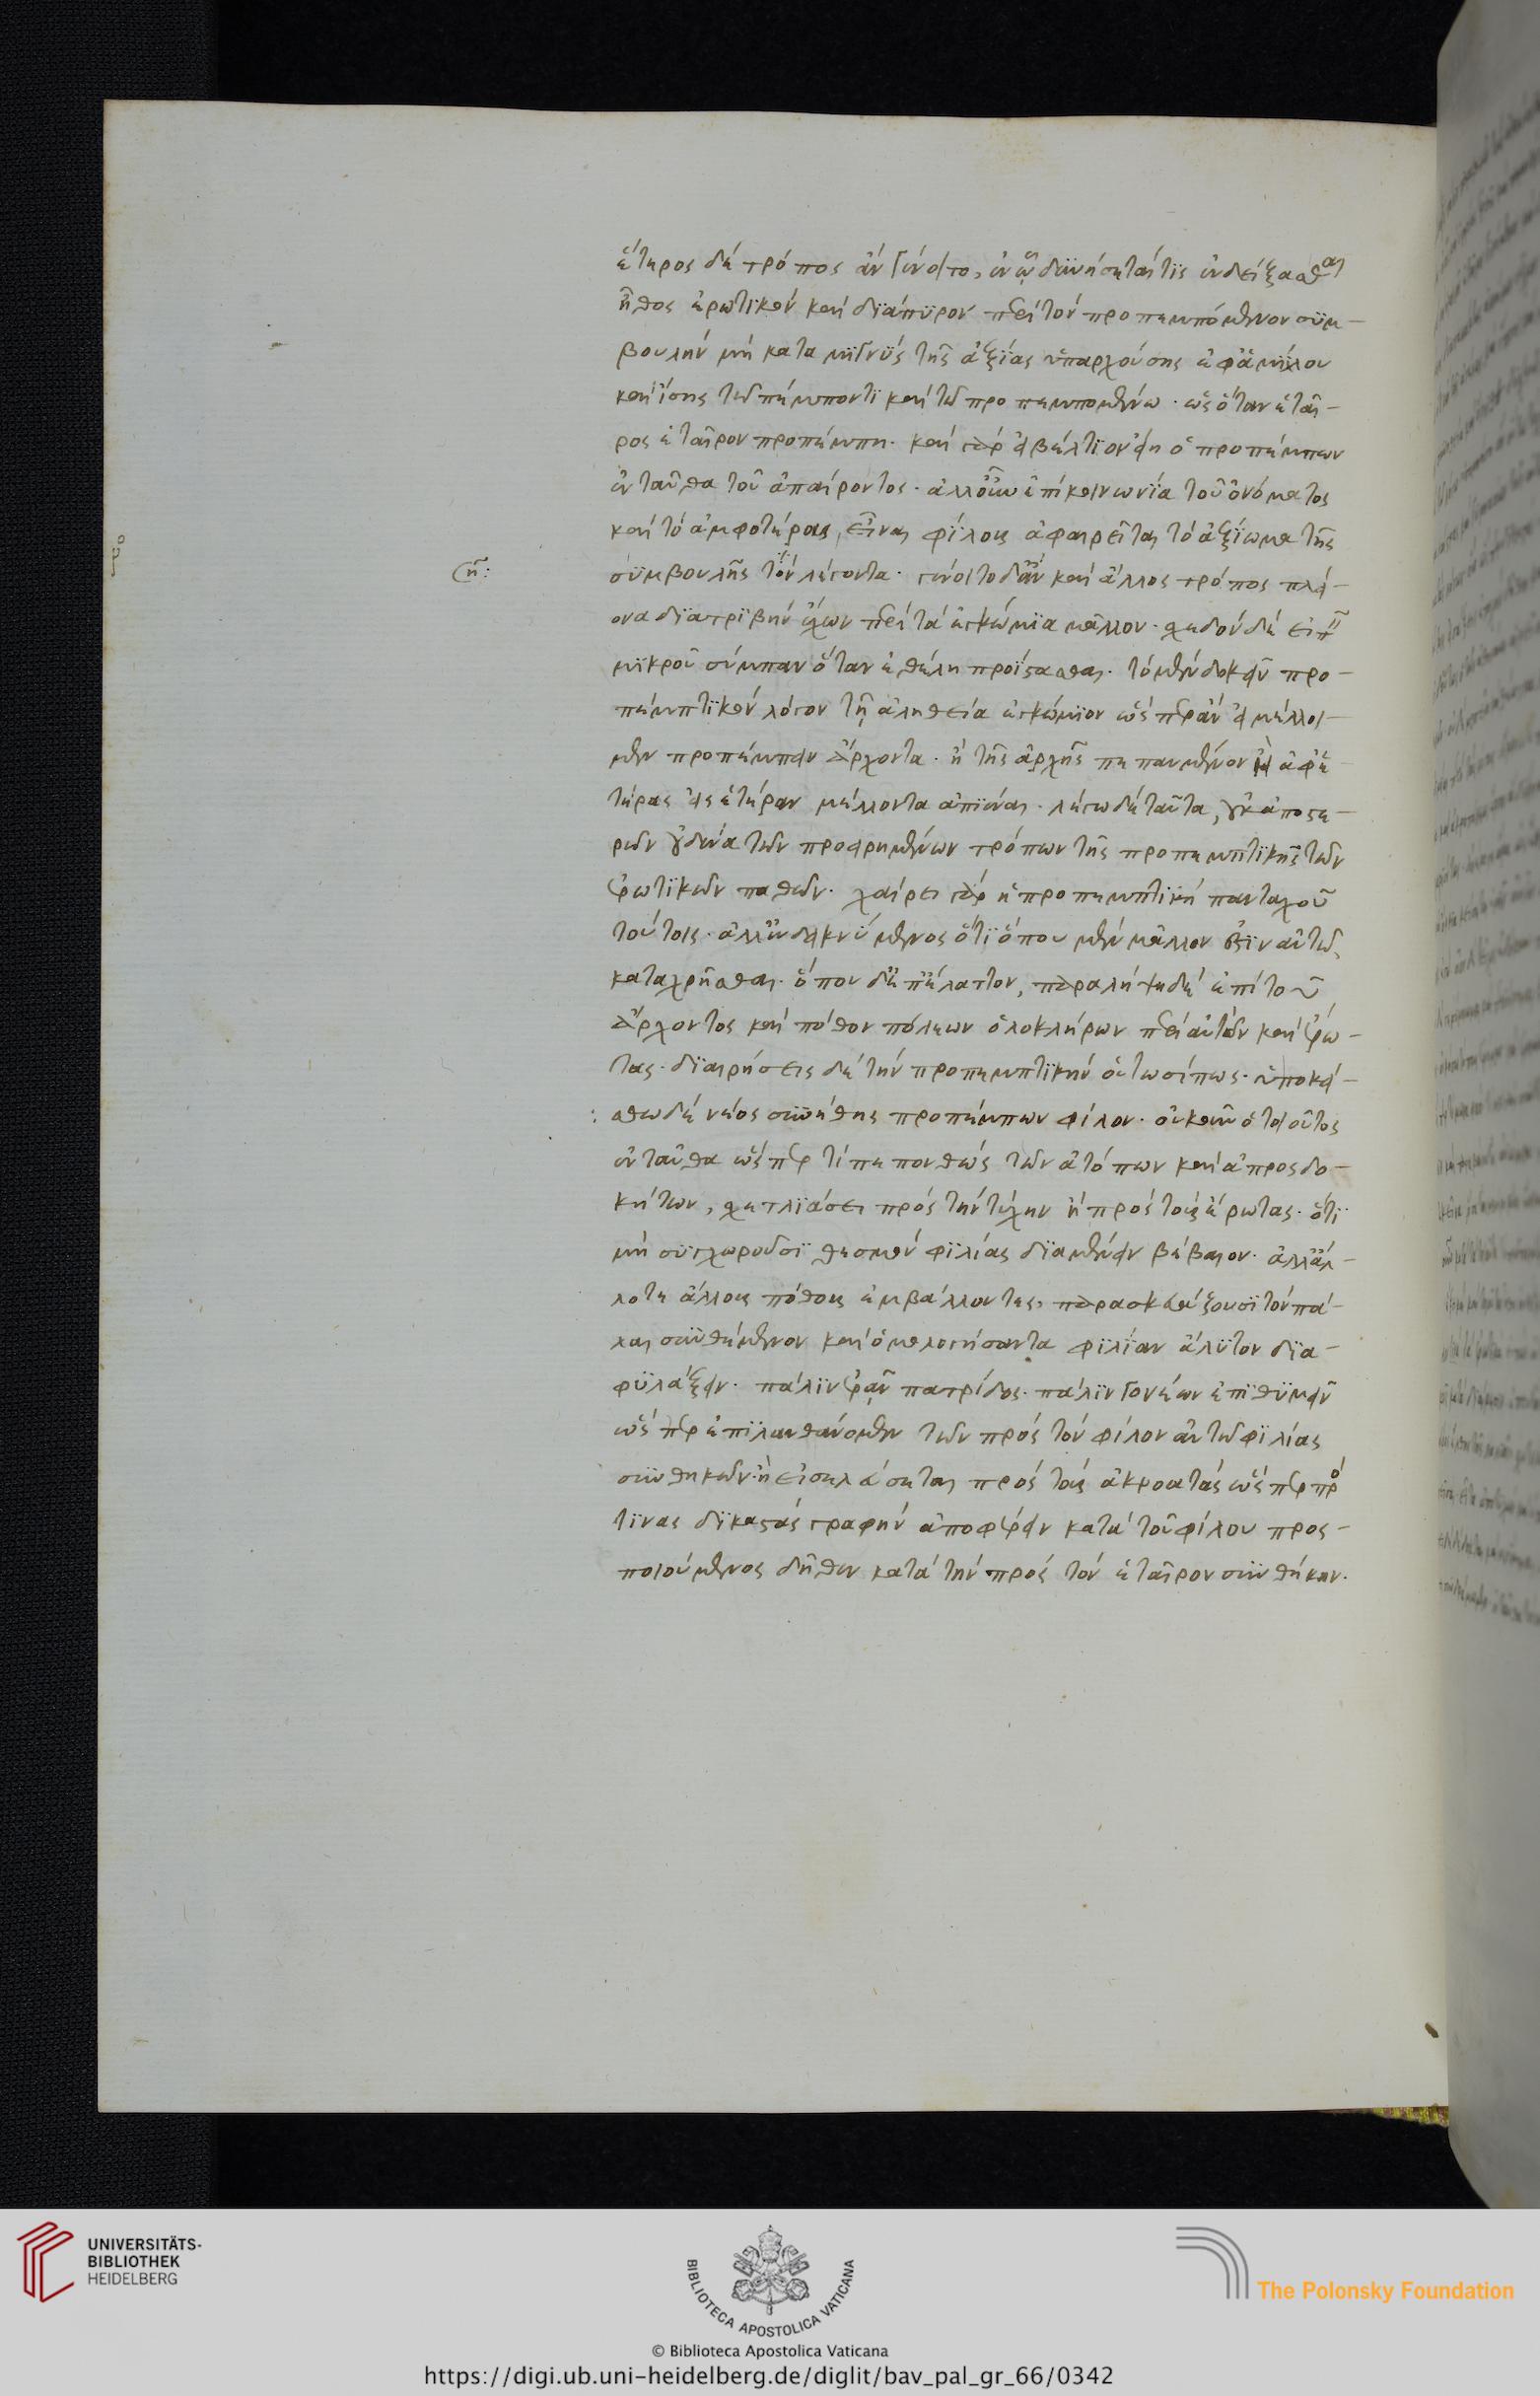 ἕτερος δὲ τρόπος ἂν γένοιτο, ἐν ᾧ δυνήσεταί τις ἐνδείξασθαι
ἦθος ἐρωτικὸν καὶ διάπυρον περὶ τὸν προπεμπόμενον συμ-
βουλὴν μὴ καταμιγνὺς τῆς ἀξίας ὑπαρχούσης ἐφαμίλου
καὶ ἴσης τῷ πέμποντι καὶ τῷ προπεμπομένω. ὡς ὅταν ἑταῖ-
ρος ἑταῖρον προπέμπη. καὶ γὰρ εἰ βελτίον εἴη ὁ προπέμπων
ἐνταῦθα τοῦ ἀπαίροντος. ἀλλ' οὖν ἐπικοινωνία τοῦ ὀνόματος
καὶ τὸ ἀμφοτέρους εἶναι φίλους ἀφαιρεῖται τὸ ἀξίωμα τῆς
ση:
συμβουλῆς τὸν λέγοντα. γένοιτο δ' ἂν καὶ ἄλλος τρόπος πλεί-
ονα διατριβὴν ἔχων περὶ τὰ ἐγκώμια μᾶλλον. σχεδὸν δὲ εἰπεῖν
μικροῦ σύμπαν ὅταν ἐθέλη προΐστασθαι. τὸ μὲν δοκεῖν προ-
πεμπτικὸν λόγον τῇ ἀληθεία ἐγκώμιον ὥσπερ ἂν εἰ μέλλοι-
μεν προπέμπειν ἄρχοντα. ἢ τῆς ἀρχῆς πεπαυμένον ἢ ἀφ' ἑ-
τέρας εἰς ἑτέραν μέλλοντα ἀπιέναι. λέγω δὲ ταῦτα, οὐκ ἀποστε-
ρῶν οὐδένα τῶν προειρημένων τρόπων τῆς προπεμπτικῆς τῶν
ἐρωτικῶν παθῶν. χαίρει γὰρ ἡ προπεμπτικὴ πανταχοῦ
τούτοις. ἀλλ' ἐνδεικνύμενος ὅτι ὅπου μὲν μᾶλλον ἔστιν αὐτῷ
καταχρῆσθαι. ὅπου δὲ ἐπ' ἔλαττον, παραλήψη δὲ ἐπὶ τοῦ
ἄρχοντος καὶ πόθον πόλεων ὁλοκλήρων περὶ αὐτὸν καὶ ἔρω-
τας. διαιρήσεις δὲ τὴν προπεμπτικὴν οὑτωσί πως. ὑποκεί-
σθω δὲ νέος συνήθης προπέμπων φίλον. οὐκοῦν ὁ τοιοῦτος
ἐνταῦθα ὥσπερ τι πεπονθὼς τῶν ἀτόπων καὶ ἀπροσδο-
κήτων, σχετλιάσει πρὸς τὴν τύχην ἢ πρὸς τοὺς ἔρωτας. ὅτι
μὴ συγχωροῦσι θεσμὸν φιλίας διαμένειν βέβαιον. ἀλλ' ἄλ-
λοτε ἄλλους πόθους ἐμβάλλοντες, παρασκευάζουσι τὸν πά-
λαι συνθέμενον καὶ ὁμολογήσαντα φιλίαν ἄλυτον δια-
φυλάξειν. πάλιν ἐρᾶν πατρίδος. πάλιν γονέων ἐπιθυμεῖν
ὥσπερ ἐπιλανθανόμεν τῶν πρὸς τὸν φίλον αὐτῷ φιλίας
συνθηκῶν. ἢ εἰσελεύσεται πρὸς τοὺς ἀκροατὰς ὥσπερ πρὸς
τινας δικαστὰς γραφὴν ἀποφέρειν κατὰ τοῦ φίλου προς-
ποιούμενος δῆθεν κατὰ τὴν πρὸς τὸν ἑταῖρον συνθήκην.
UNIVERSITÄTS-
BIBLIOTHEK
HEIDELBERG
BIBLIOTECA APOSTOLICA VATICANA
The Polonsky Foundation
© Biblioteca Apostolica Vaticana
https://digi.ub.uni-heidelberg.de/diglit/bav_pal_gr_66/0342